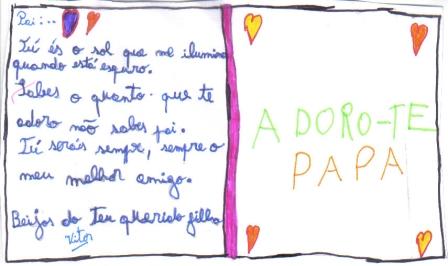 Pai:..
Tú és o sol que me ilumina
quando está esquro.
Sabes o quanto que te
adoro não sabes pai.
Tú serás sempr, sempre o
meu melhor amigo.
Beijos do teu querido filho
Vitor
ADORO-TE
PAPA